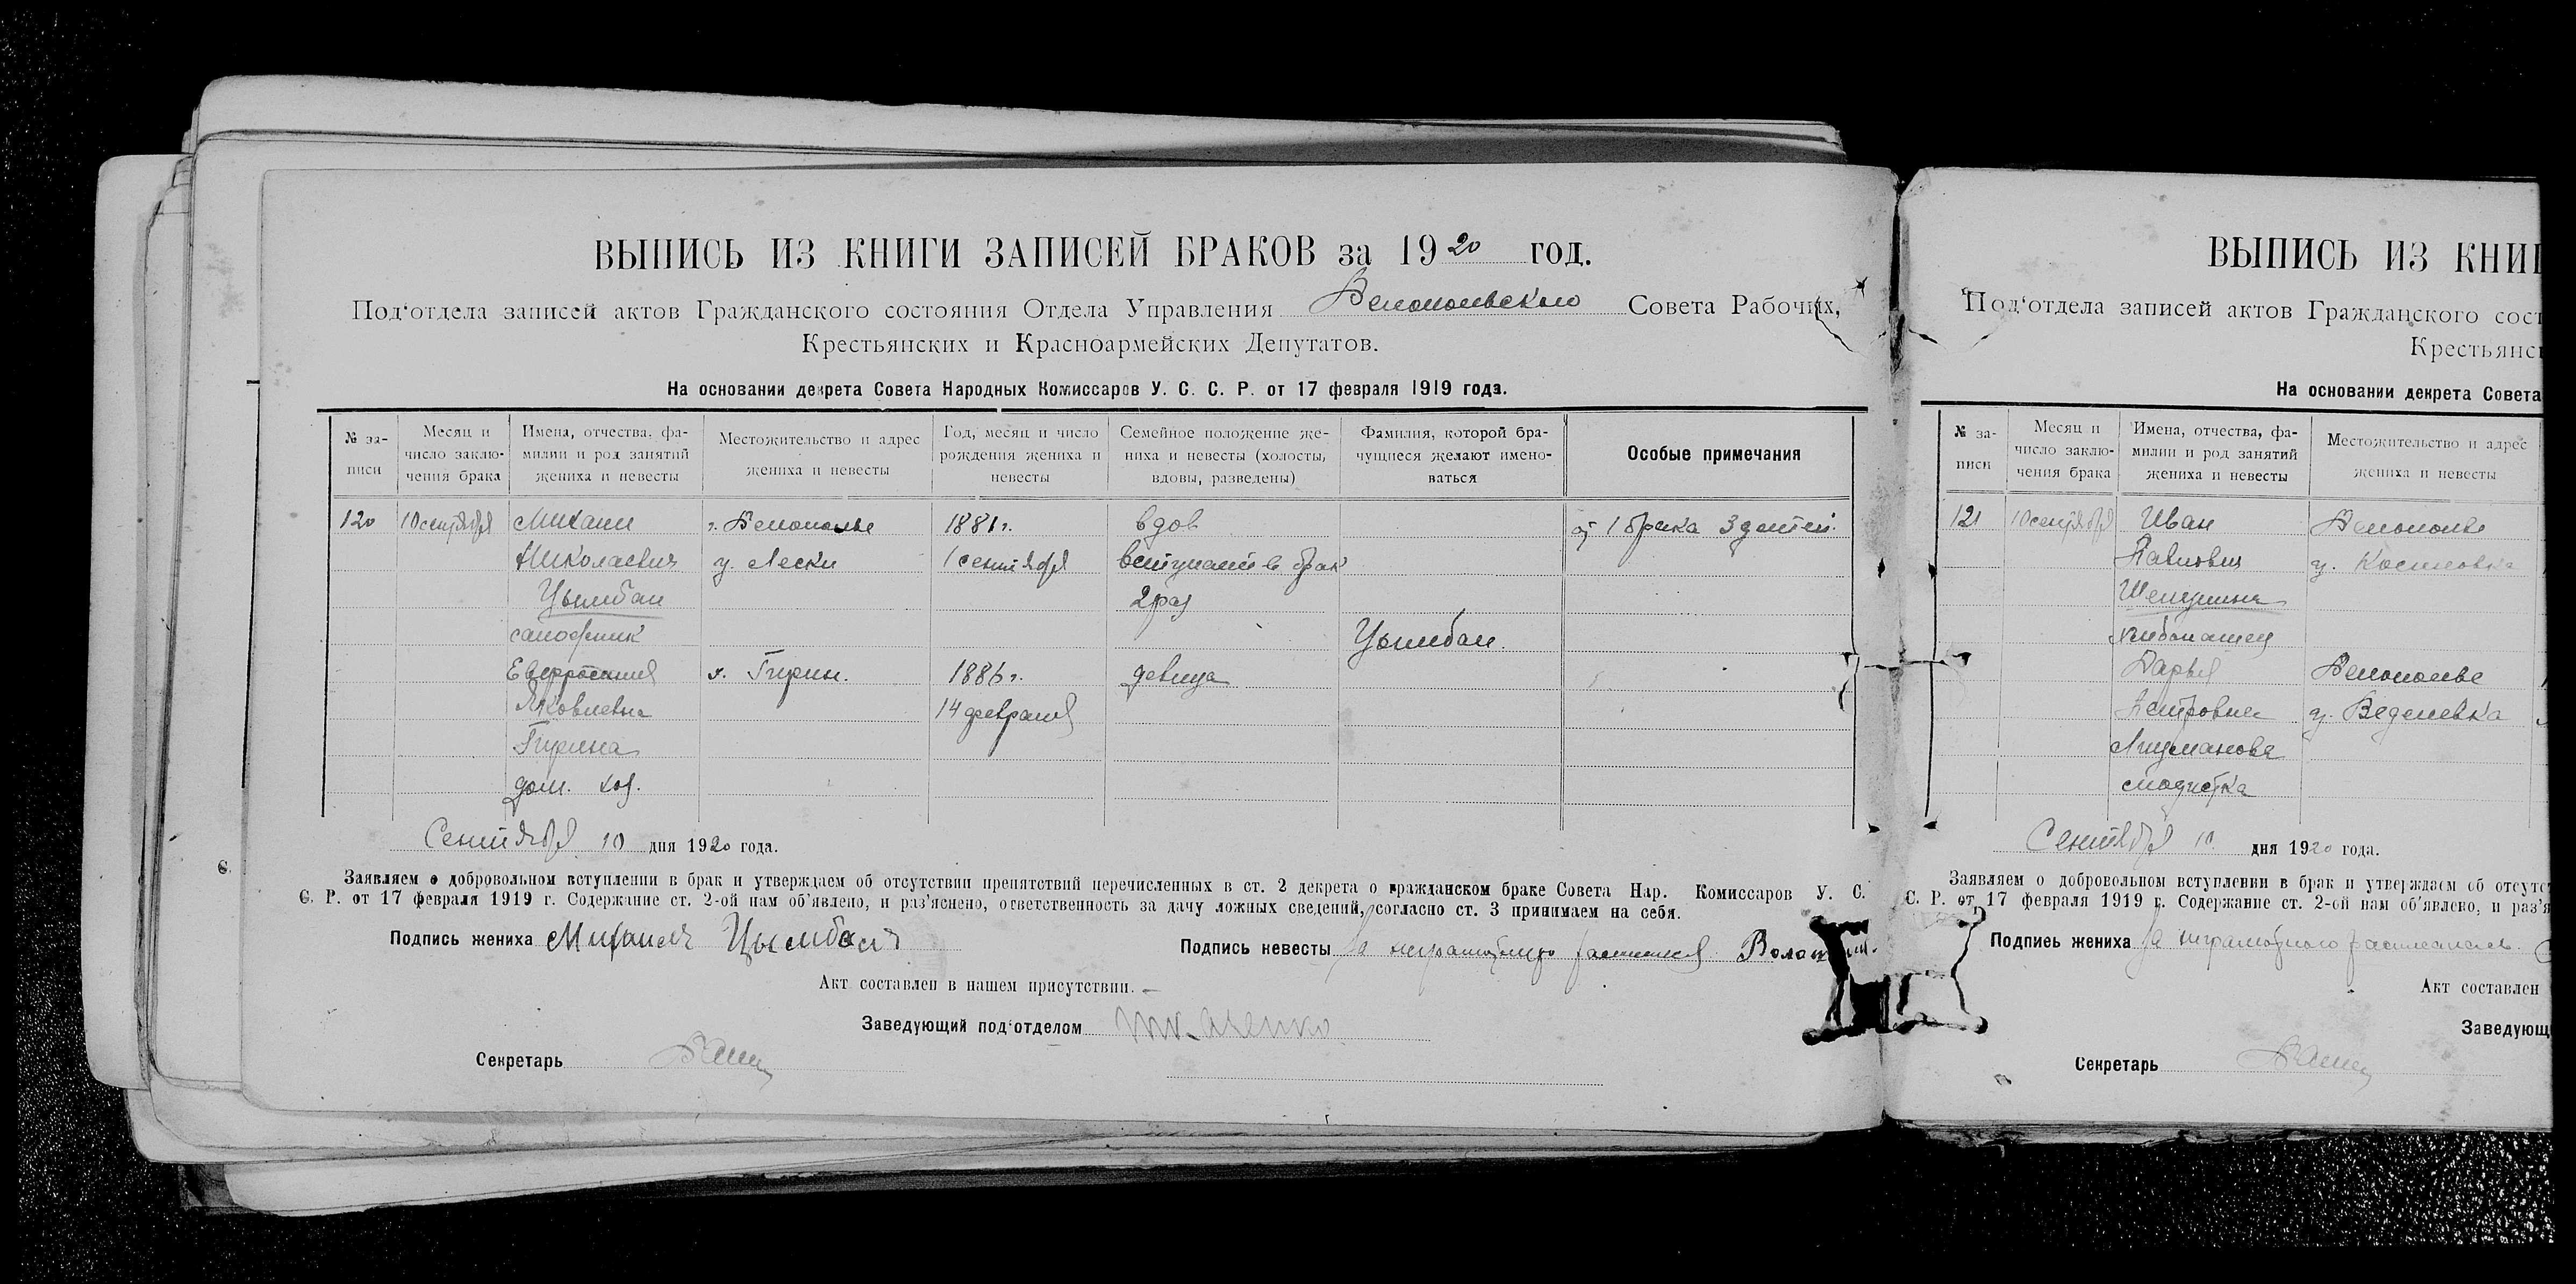 ВЫПИСЬ ИЗ КНИГИ ЗАПИСЕЙ БРАКОВ за 1920 год.
Под‘отдела записей актов Гражданского состояния Отдела Управления Белопольского Совета Рабочих,
Крестьянских и Красноармейских Депутатов.
На основании декрета Совета Народных Комиссаров У. С. С. Р. от 17 февраля 1919 года.
№ за-
писи
Месяц и
число заклю-
чения брака
Имена, отчества, фа-
милии и род занятий
жениха и невесты
Местожительство и адрес
жениха и невесты
Год, месяц и число
рождения жениха и
невесты
Семейное положение же-
ниха и невесты (холосты,
вдовы, разведены)
Фамилия, которой бра-
чущиеся желают имено-
ваться
Особые примечания
120 10 сентября Михаил г. Белополье 1881 г. вдов от 1 брака 3 детей.
Николаевич у. Лески 1 сентября вступает в брак
Цымбал 2 раз
сапожник Цымбал.
Евфросиния х. Гирин. 1886 г. девица
Яковлевна 14 февраля
Гирина
дом. хоз.
Сентября 10 дня 1920 года.
Заявляем о добровольном вступлении в брак и утверждаем об отсутствии препятствий перечисленных в ст. 2 декрета о гражданском браке Совета Нар. Комиссаров У. С.
С. Р. от 17 февраля 1919 г. Содержание ст. 2-ой нам об‘явлено, и раз‘яснено, ответственность за дачу ложных сведений, согласно ст. 3 принимаем на себя.
Подпись жениха Михаил Цымбал
Подпись невесты За неграмотную расписался
Акт составлен в нашем присутствии.
Заведующий под‘отделом Ткаченко
Секретарь
ВЫПИСЬ ИЗ КНИГ
Под‘отдела записей актов Гражданского сост
Крестьянс
На основании декрета Совета
№ за-
писи
Месяц и
число заклю-
чения брака
Имена, отчества, фа-
милии и род занятий
жениха и невесты
Местожительство и адрес
жениха и невесты
121 10 сентября Иван Белополье
Павлович у. Костевка
хлебопашец
Дарья Белополье
Петровна у. Веденевка
модистка
Сентября 10 дня 1920 года.
Заявляем о добровольном вступлении в брак и утверждаем об отсутст
С. Р. от 17 февраля 1919 г. Содержание ст. 2-ой нам об‘явлено, и раз‘я
Подпись жениха За неграмотного расписался
Акт составлен
Заведующ
Секретарь